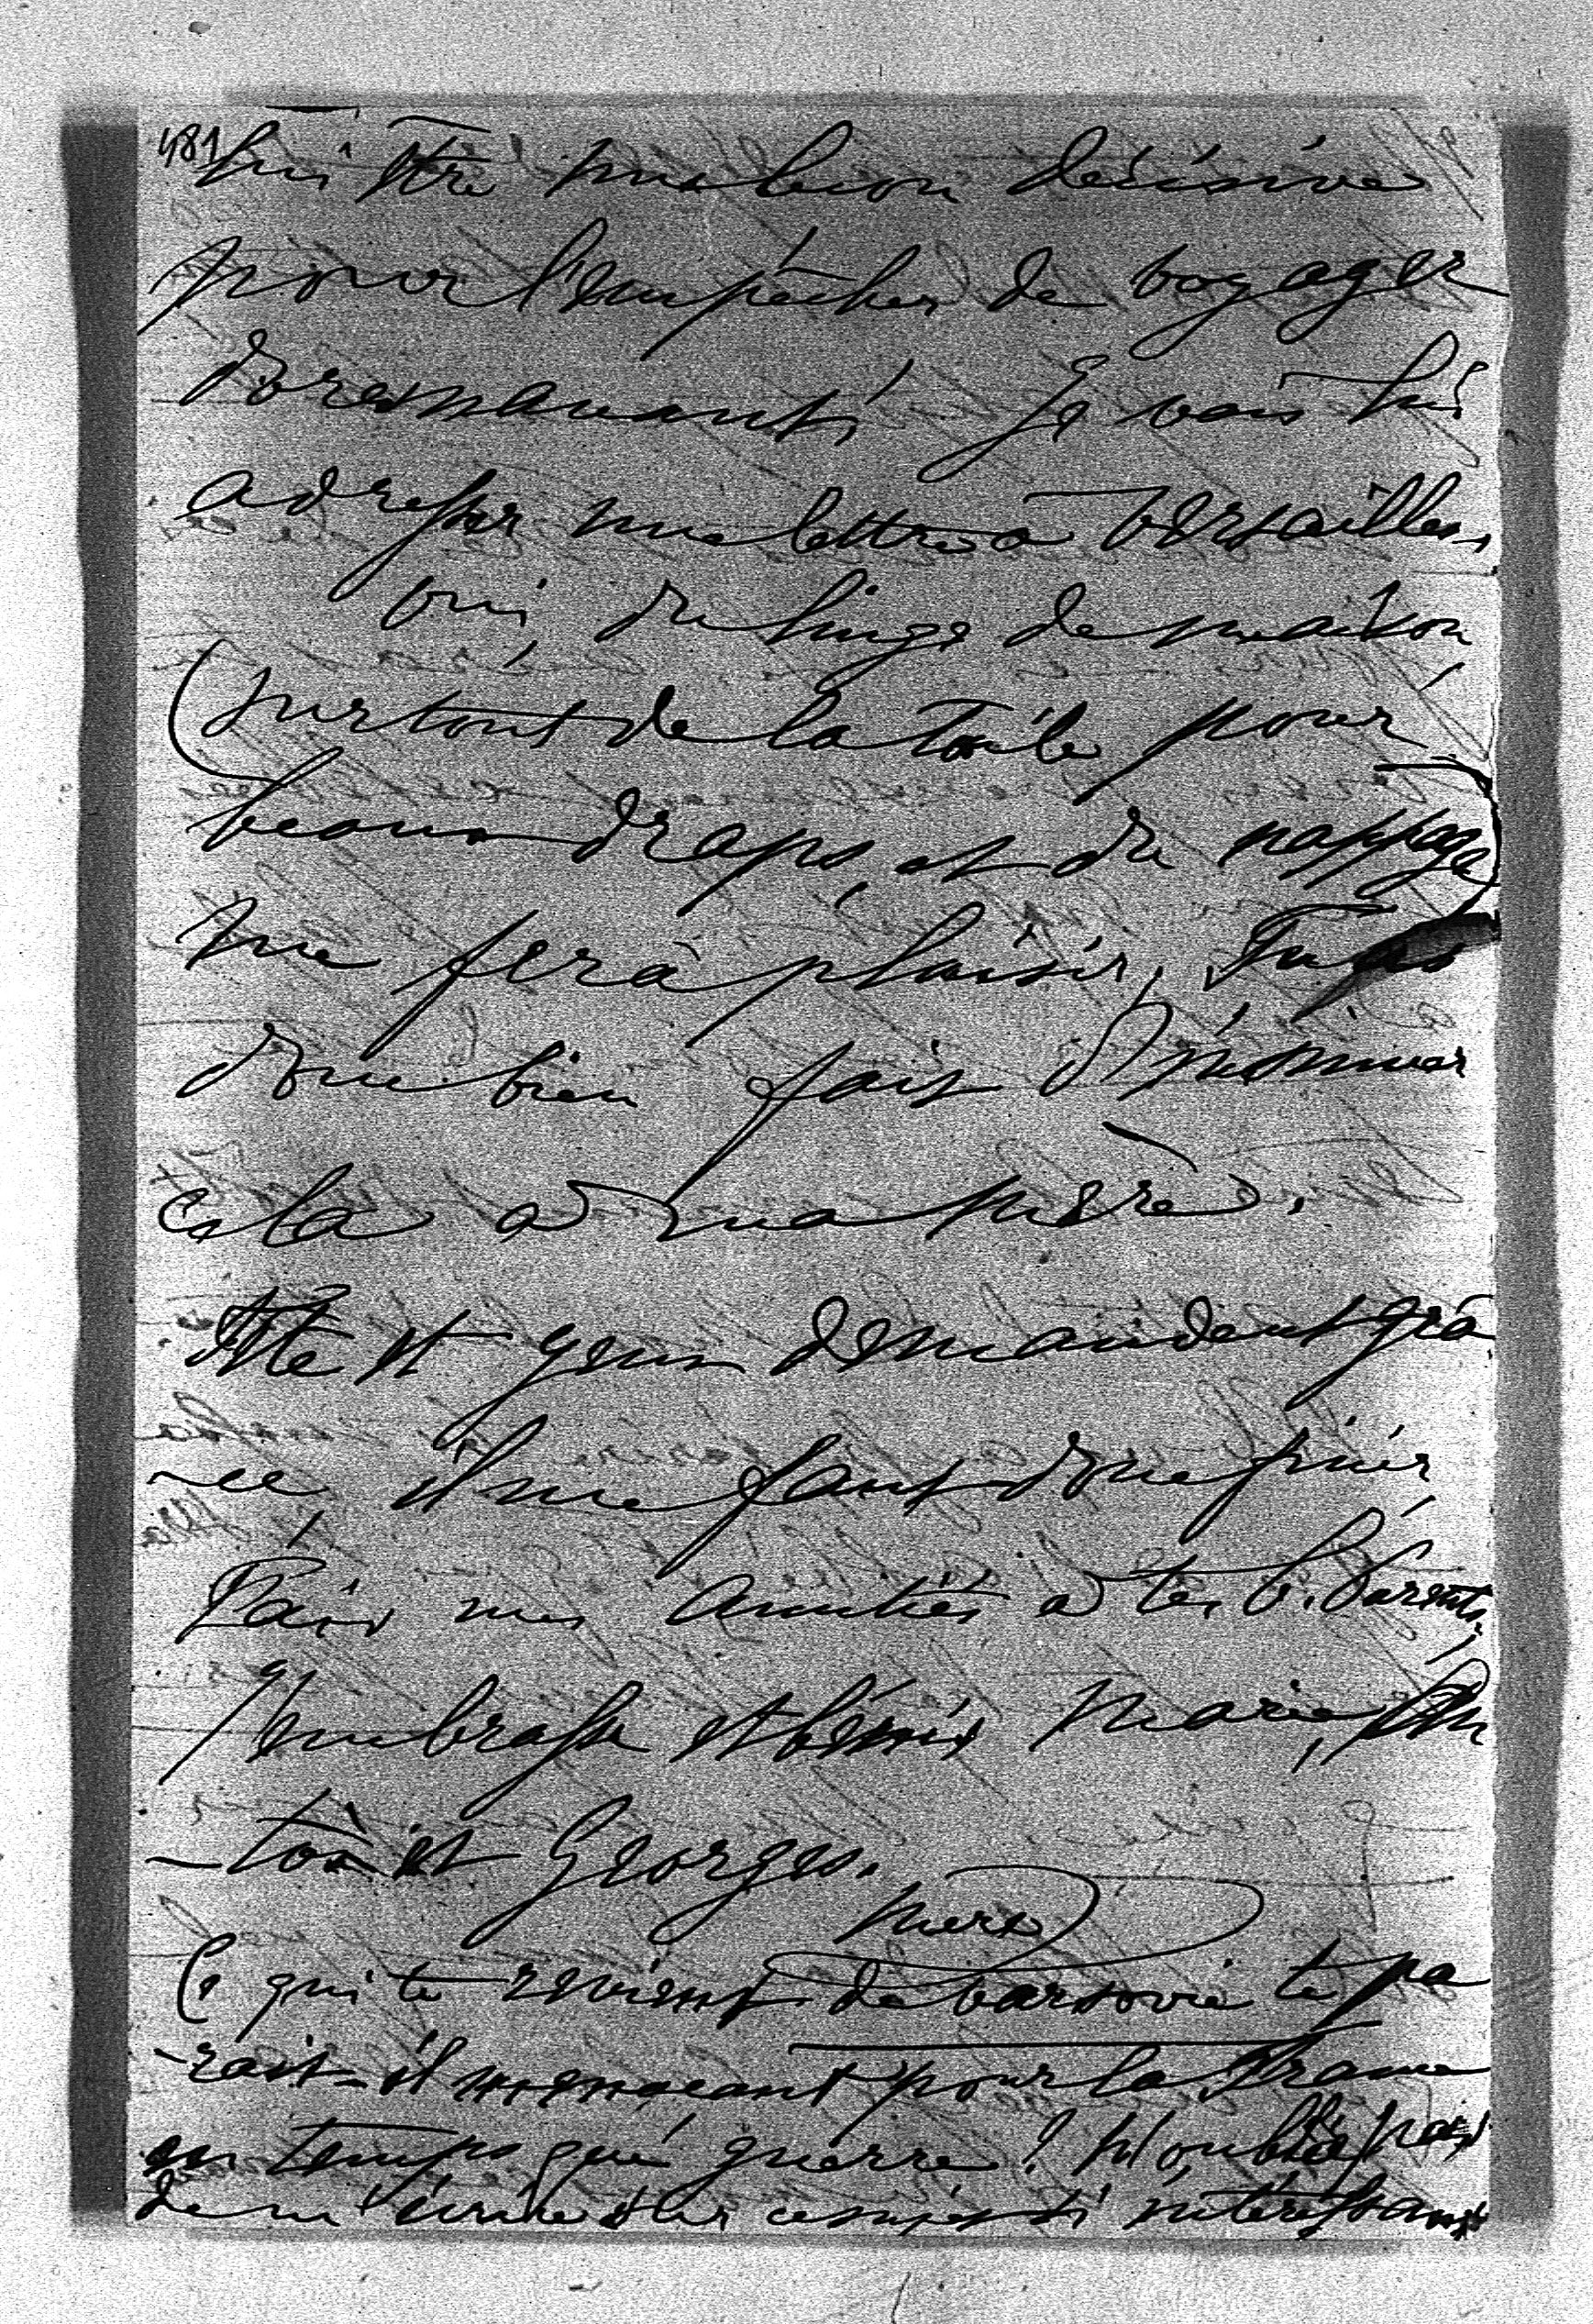 481 lui être une leçon décisive
pour l'empêcher de voyager
dorenavant! Je vais lui
adresser une lettre à Versailles,
oui, du linge de maison
(surtout de la toile pour
beaux draps, et du nappage)
me fera plaisir. Tu
donc bien fait d'insinuer
cela à ma mère.
Tête et yeux demandent grâ
-ce, il me faut donc finir
Fais mes amitiés à tes b. Parents,
J'embrasse et bénis Marie, An
-toine et Georges.
mère
Ce qui te revient de Varsovie te pa
-rait-il menaçant pour la France
en temps que guerre? N'oublie pas
de m'écrire sur ce sujet si intéressant